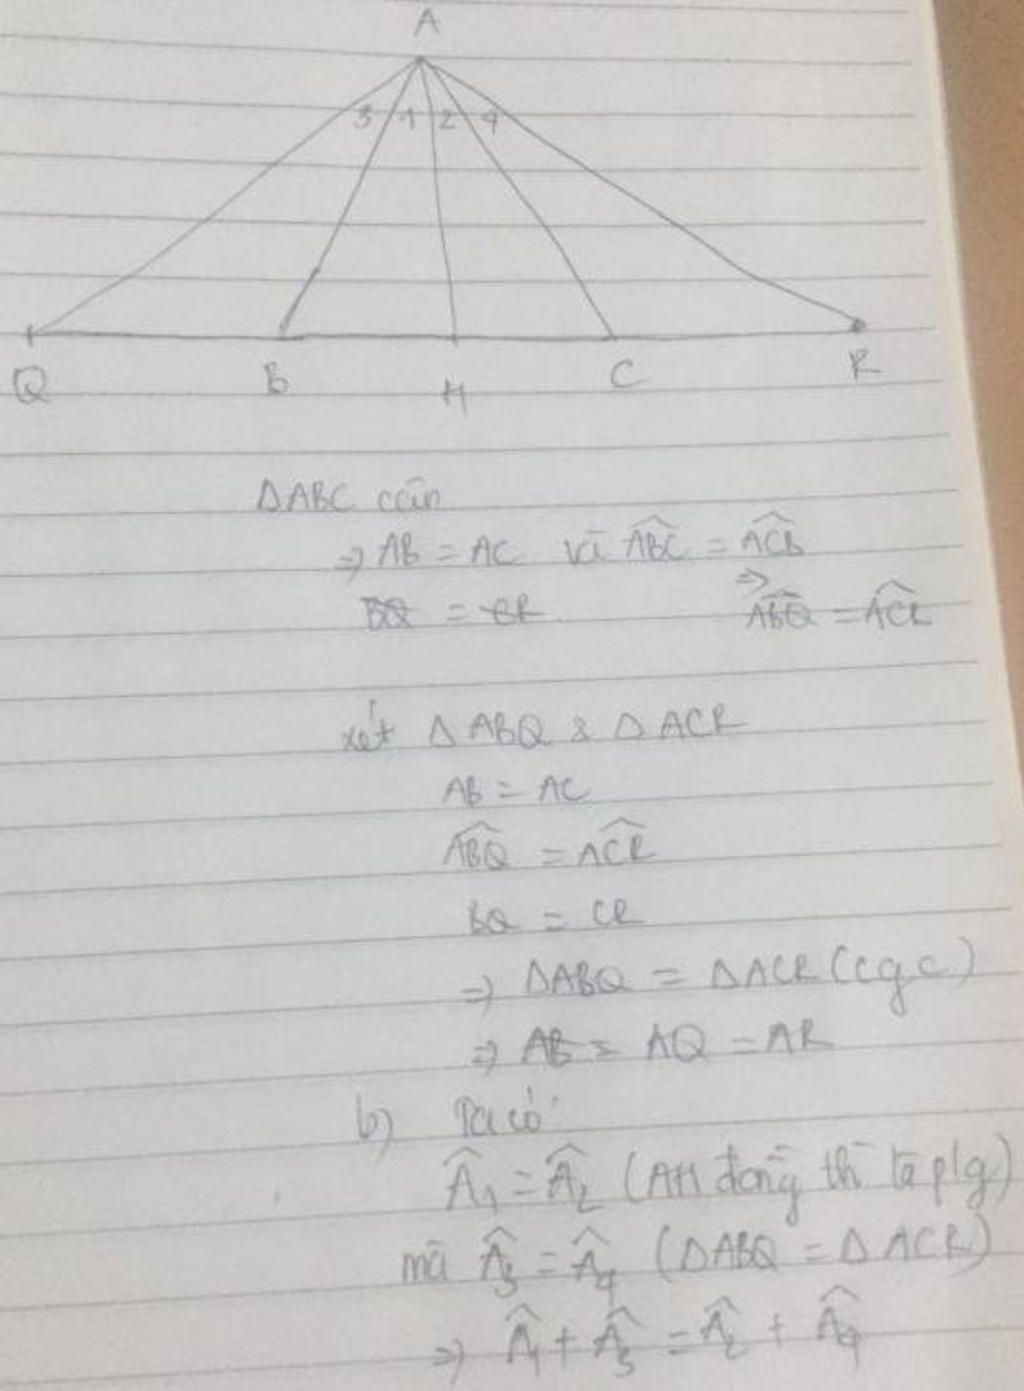 A
3 1 2 4
Q B H C R
ΔABC cân
⇒ AB = AC và ABC = ACB
⇒
BQ = CR ABQ = ACR
xét ΔABQ & ΔACR
AB = AC
ABQ = ACR
BQ = CR
⇒ ΔABQ = ΔACR (cgc)
⇒ AB = AQ = AR
b) Ta có:
Â1 = Â2 (AH đồng thì là p/g)
mà Â3 = Â4 (ΔABQ = ΔACR)
⇒ Â1 + Â3 = Â2 + Â4